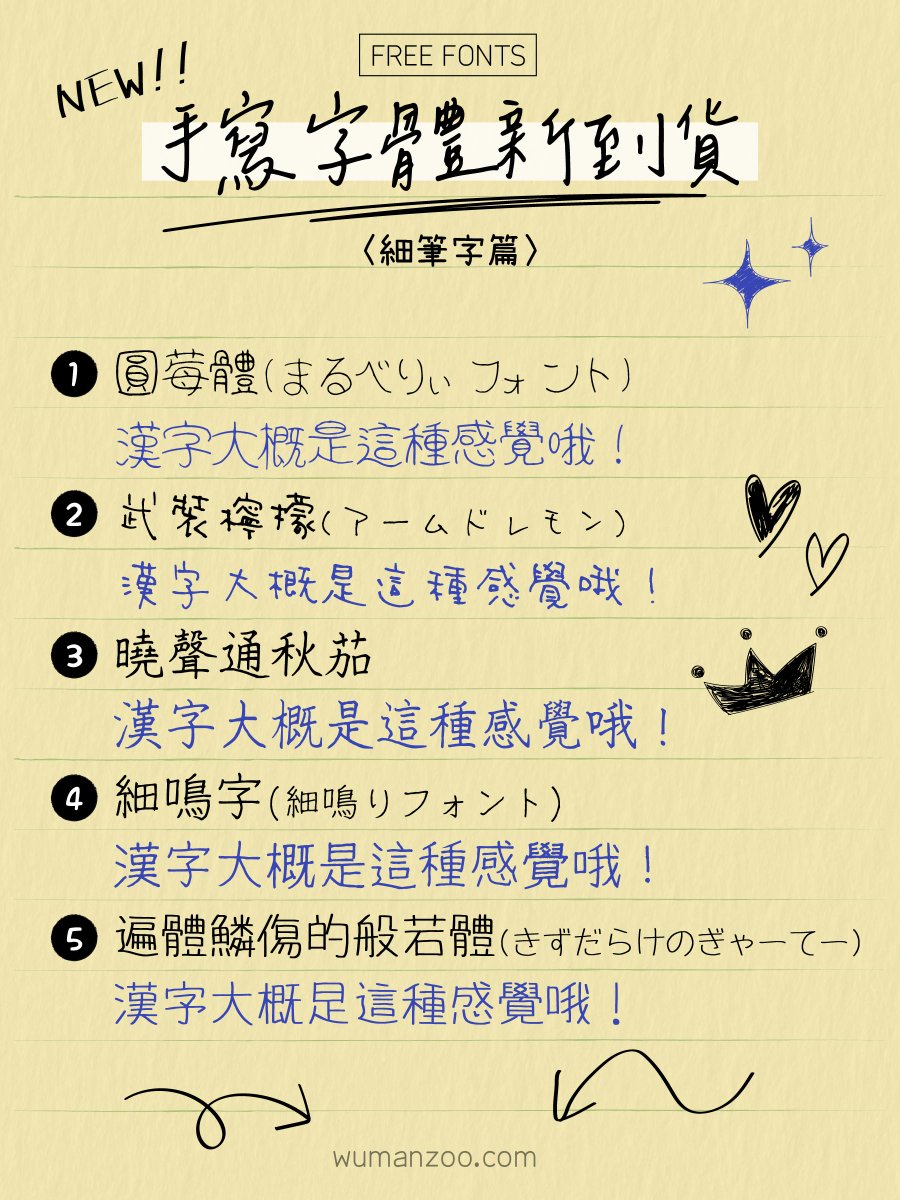 FREE FONTS
NEW!!
手寫字體新到貨
〈細筆字篇〉
1 圓莓體(まるべりぃフォント)
漢字大概是這種感覺哦！
2 武裝檸檬(アームドレモン)
漢字大概是這種感覺哦！
3 曉聲通秋茄
漢字大概是這種感覺哦！
4 細鳴字(細鳴りフォント)
漢字大概是這種感覺哦！
5 遍體鱗傷的般若體(きずだらけのぎゃーてー)
漢字大概是這種感覺哦！
wumanzoo.com